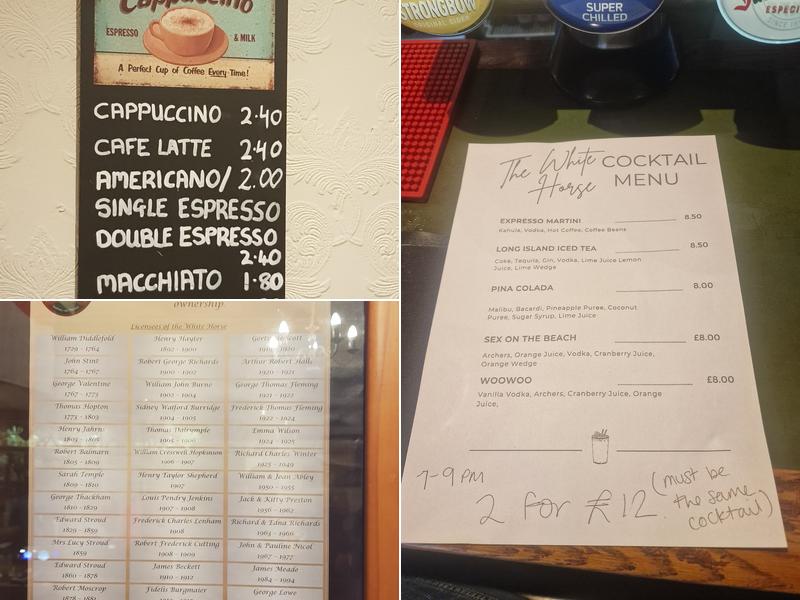 Cappuccino
ESPRESSO & MILK
A Perfect Cup of Coffee Every Time!
CAPPUCCINO 2.40
CAFE LATTE 2.40
AMERICANO/ 2.00
SINGLE ESPRESSO
DOUBLE ESPRESSO
2.40
MACCHIATO 1.80
STRONGBOW
ORIGINAL CIDER
SUPER
CHILLED
ESPECI
The White Horse COCKTAIL MENU
EXPRESSO MARTINI 8.50
Kahula, Vodka, Hot Coffee, Coffee Beans
LONG ISLAND ICED TEA 8.50
Coke, Tequila, Gin, Vodka, Lime Juice Lemon
Juice, Lime Wedge
PINA COLADA 8.00
Malibu, Bacardi, Pineapple Puree, Coconut
Puree, Sugar Syrup, Lime Juice
SEX ON THE BEACH £8.00
Archers, Orange Juice, Vodka, Cranberry Juice,
Orange Wedge
WOOWOO £8.00
Vanilla Vodka, Archers, Cranberry Juice, Orange
Juice,
7-9 PM
2 for £12 (must be
the same
cocktail)
ownership
Licensees of the White Horse
William Diddlefold
1729 - 1764
John Stint
1764 - 1767
George Valentine
1767 - 1773
Thomas Hopton
1773 - 1803
Henry Jahrns
1803 - 1805
Robert Balmarn
1805 - 1809
Sarah Temple
1809 - 1810
George Thackham
1810 - 1829
Edward Stroud
1829 - 1859
Mrs Lucy Stroud
1859
Edward Stroud
1860 - 1878
Robert Moscrop
1878 - 1881
Henry Hayter
1892 - 1900
Robert George Richards
1900 - 1902
William John Burne
1902 - 1904
Sidney Watford Burridge
1904 - 1905
Thomas Dalrymple
1905 - 1906
William Cresswell Hopkinson
1906 - 1907
Henry Taylor Shepherd
1907
Louis Pendry Jenkins
1907 - 1908
Frederick Charles Lenham
1908
Robert Frederick Cutting
1908 - 1909
James Beckett
1910 - 1912
Fidelis Burgmaier
Arthur Robert Halls
1920 - 1921
George Thomas Fleming
1921 - 1922
Frederick Thomas Fleming
1922 - 1924
Emma Wilson
1924 - 1925
Richard Charles Winter
1925 - 1949
William & Joan Abley
1950 - 1955
Jack & Kitty Preston
1956 - 1962
Richard & Edna Richards
1963 - 1966
John & Pauline Nicol
1967 - 1977
James Meade
1984 - 1994
George Lowe